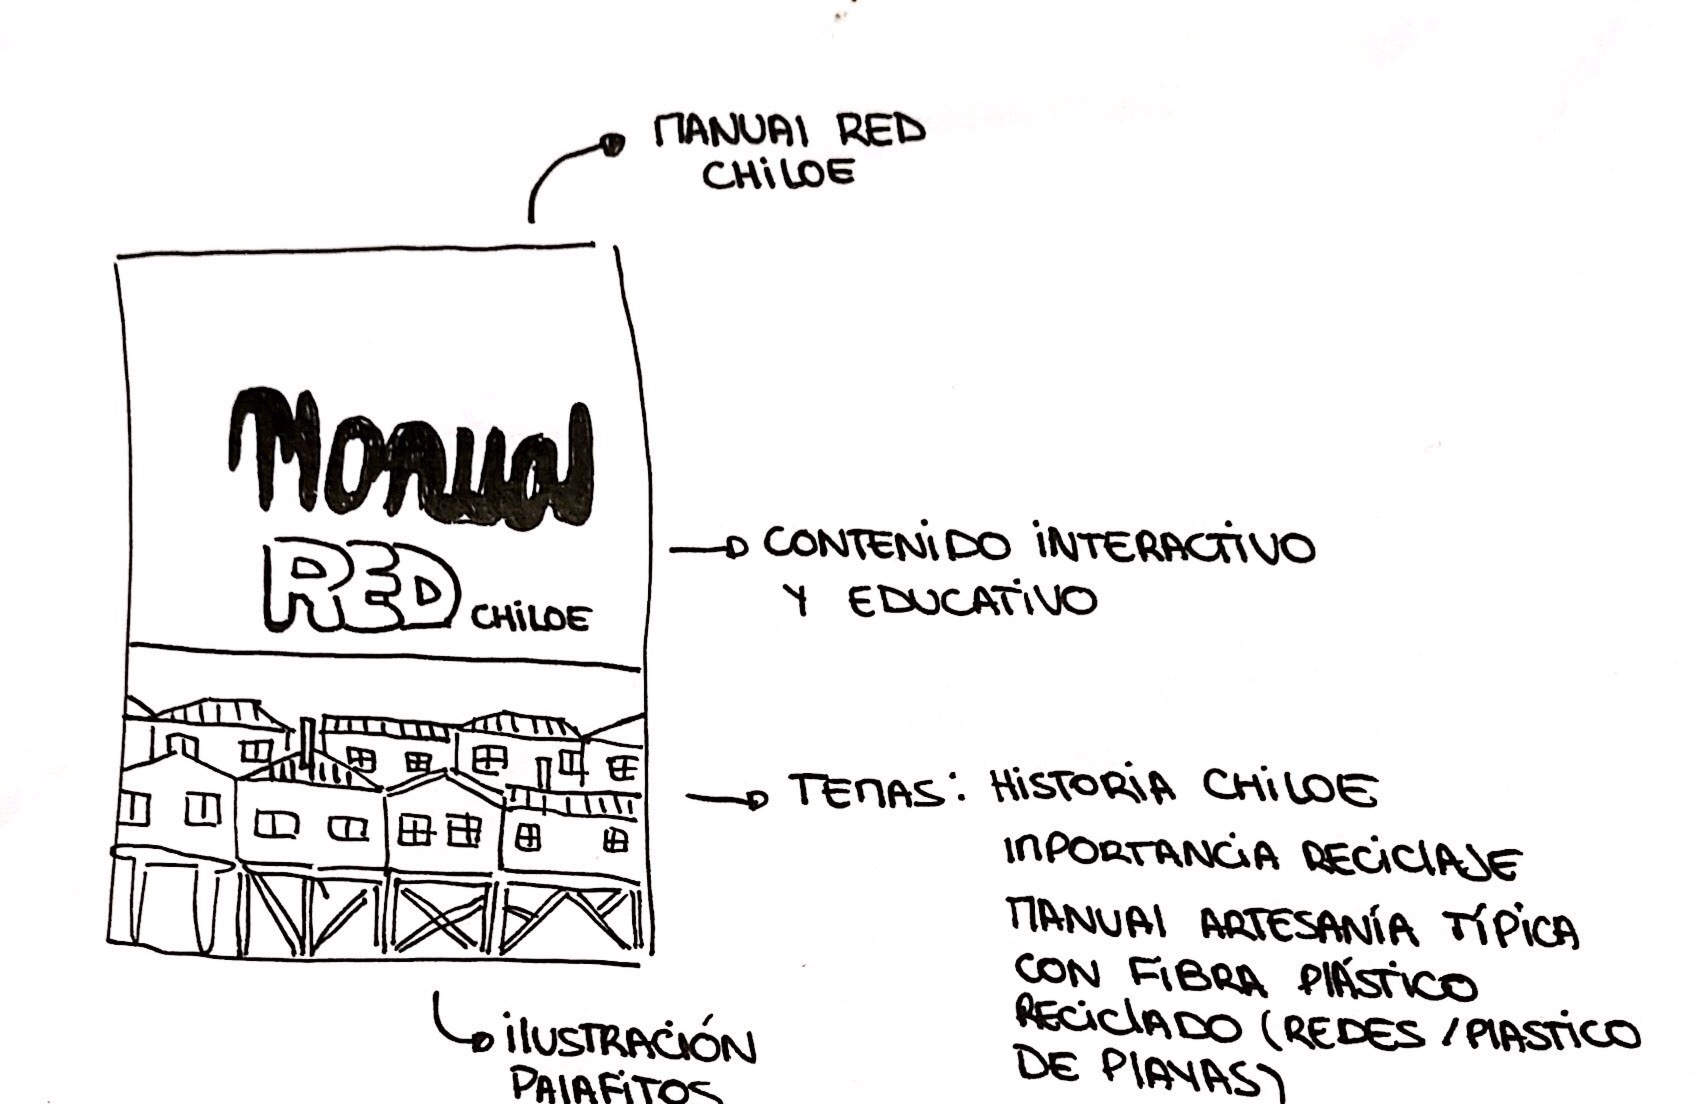 MANUAl RED
CHiLOE
Manual
RED CHiLOE
CONTENiDO iNTERACTiVO
Y EDUCATiVO
TEMAS: HiSTORiA CHiLOE
iMPORTANCiA RECiClAJE
MANUAl ARTESANÍA TÍPiCA
CON FiBRA PlÁSTiCO
RECiClADO (REDES / PlASTiCO
DE PlAYAS)
ilUSTRACiÓN
PAlAFiTOS